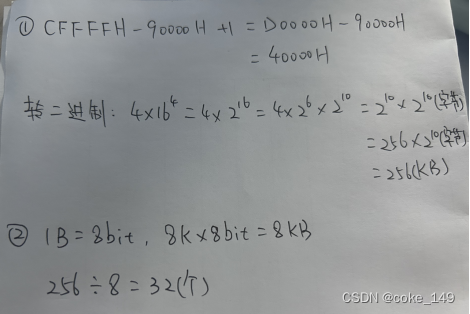 ① CFFFFH - 90000H + 1 = D0000H - 90000H
= 40000H
转二进制: 4×16⁴ = 4×2¹⁶ = 4×2⁶×2¹⁰ = 2¹⁰×2¹⁰(字节)
= 256×2¹⁰(字节)
= 256(KB)
② 1B = 8bit, 8K×8bit = 8KB
256÷8 = 32(个)
CSDN @coke_149